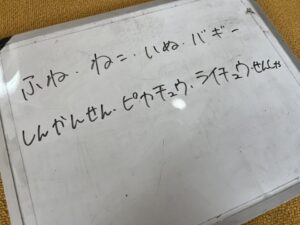 ふね・ねこ・いぬ・バギー
しんかんせん・ピカチュウ・ライチュウせんしゃ